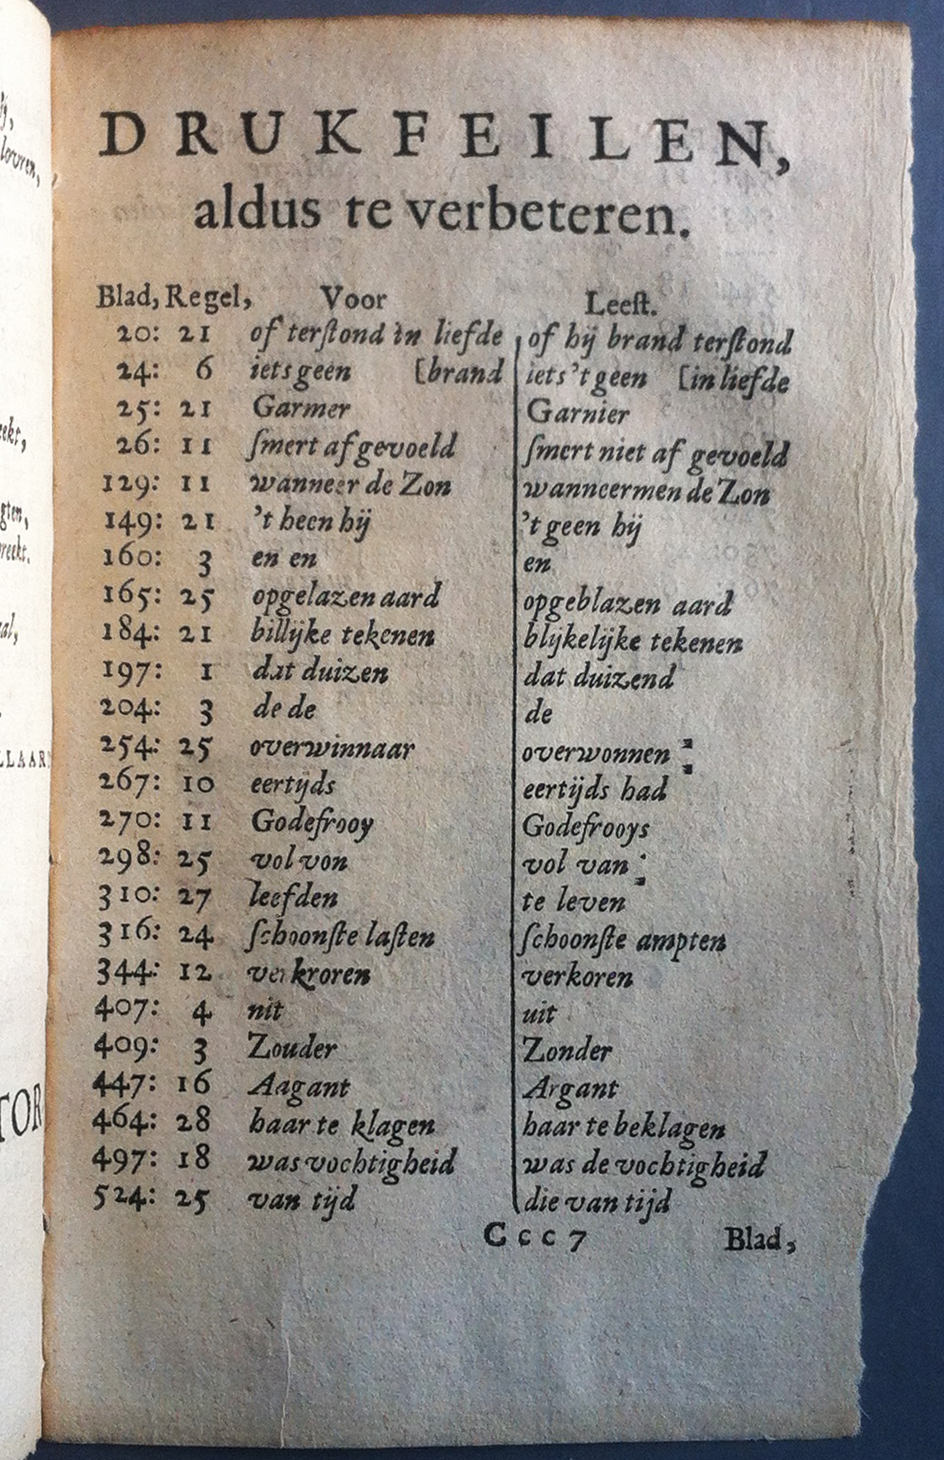 DRUKFEILEN,
aldus te verbeteren.
Blad, Regel, Voor Leeſt.
20: 21 of terſtond in liefde of hij brand terſtond
24: 6 iets geen [brand iets 't geen [in liefde
25: 21 Garmer Garnier
26: 11 ſmert af gevoeld ſmert niet af gevoeld
129: 11 wanneer de Zon wanneermen de Zon
149: 21 't heen hij 't geen hij
160: 3 en en en
165: 25 opgelazen aard opgeblazen aard
184: 21 billijke tekenen blijkelijke tekenen
197: 1 dat duizen dat duizend
204: 3 de de de
254: 25 overwinnaar overwonnen
267: 10 eertijds eertijds had
270: 11 Godefrooy Godefrooys
298: 25 vol von vol van
310: 27 leefden te leven
316: 24 ſchoonſte laſten ſchoonſte ampten
344: 12 verkroren verkoren
407: 4 nit uit
409: 3 Zouder Zonder
447: 16 Aagant Argant
464: 28 haar te klagen haar te beklagen
497: 18 was vochtigheid was de vochtigheid
524: 25 van tijd die van tijd
Cccc 7 Blad,